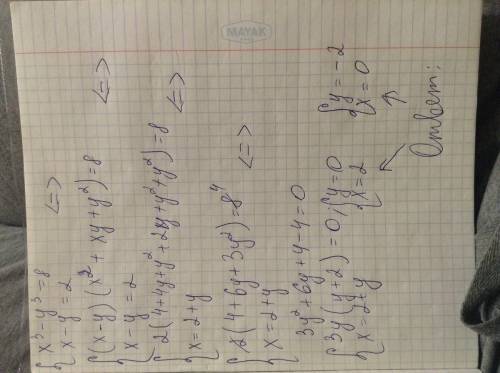 MAYAK
{ x³ - y³ = 8 <=>
x - y = 2
{ (x-y)(x² + xy + y²) = 8 <=>
x - y = 2
{ 2(4 + 4y + y² + 2y + y² + y²) = 8 <=>
x = 2 + y
{ 2(4 + 6y + 3y²) = 8 4 <=>
x = 2 + y
3y² + 6y + 4 - 4 = 0
{ 3y(y + 2) = 0 { y = 0 { y = -2
x = 2 + y x = 2 x = 0
Ответ: